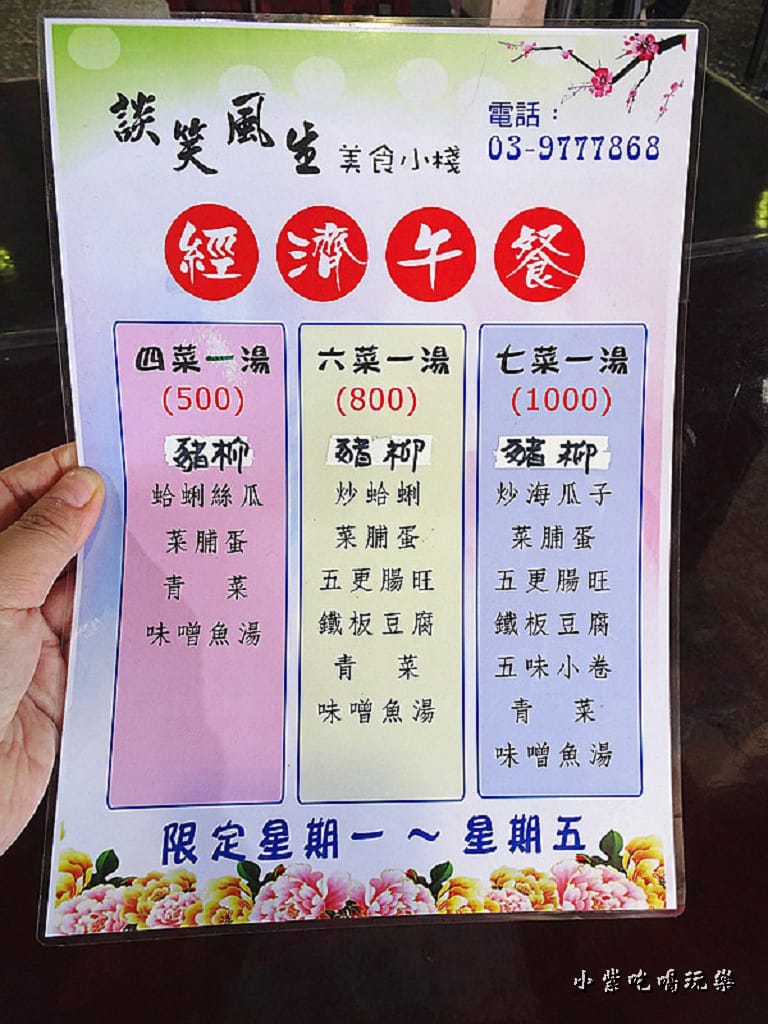 談笑風生 美食小棧
電話：
03-9777868
經濟午餐
四菜一湯
(500)
豬柳
蛤蜊絲瓜
菜脯蛋
青 菜
味噌魚湯
六菜一湯
(800)
豬柳
炒蛤蜊
菜脯蛋
五更腸旺
鐵板豆腐
青 菜
味噌魚湯
七菜一湯
(1000)
豬柳
炒海瓜子
菜脯蛋
五更腸旺
鐵板豆腐
五味小卷
青 菜
味噌魚湯
限定星期一～星期五
小紫吃喝玩樂